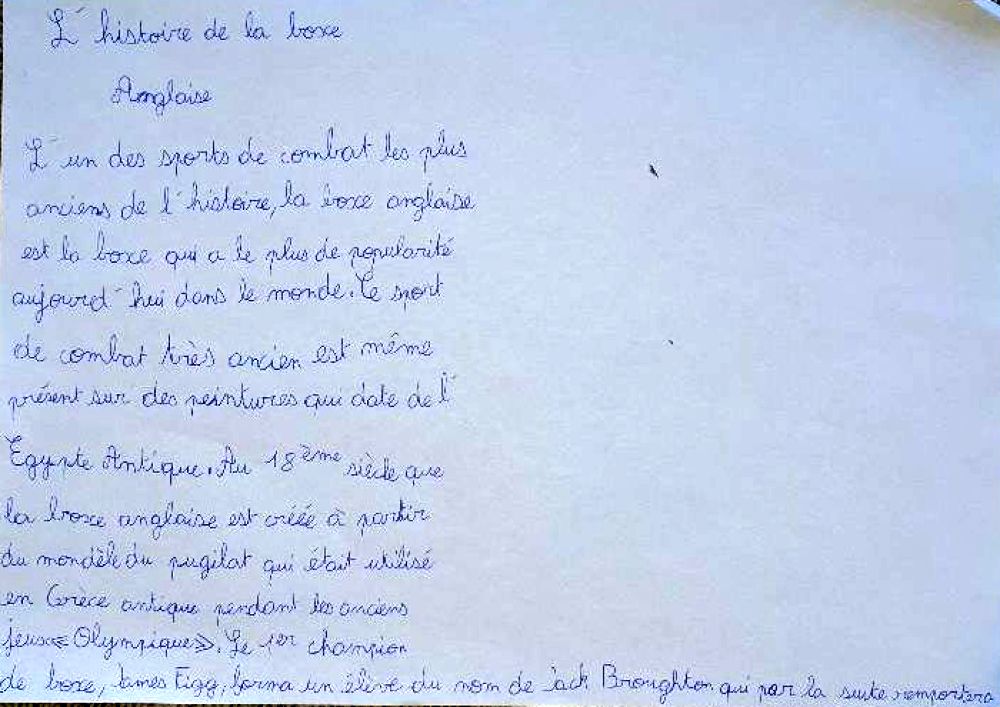 L'histoire de la boxe
Anglaise
L'un des sports de combat les plus
anciens de l'histoire, la boxe anglaise
est la boxe qui a le plus de popularité
aujourd'hui dans le monde. Ce sport
de combat très ancien est même
présent sur des peintures qui date de l'
Egypte Antique. Au 18ème siècle que
la boxe anglaise est créée à partir
du mondèle du pugilat qui était utilisé
en Grèce antique pendant les anciens
jeux « Olympique ». Le 1er champion
de boxe, James Figg, forma un élève du nom de jack Broughton qui par la suite remportera